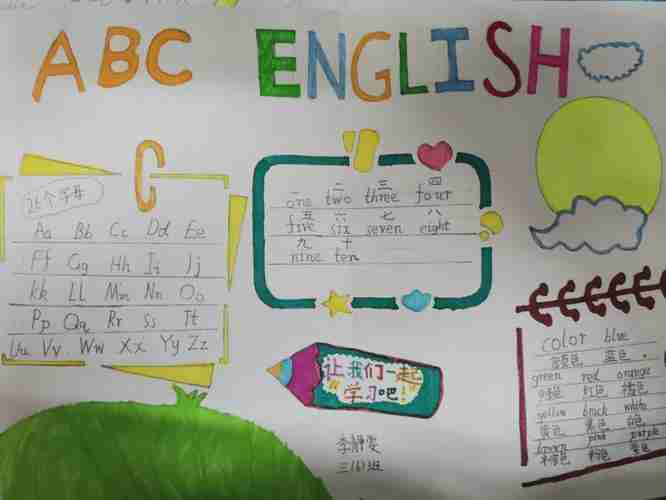 ABC ENGLISH
C
26个字母
Aa Bb Cc Dd Ee
Ff Gg Hh Ii Jj
Kk Ll Mm Nn Oo
Pp Qq Rr Ss Tt
Uu Vv Ww Xx Yy Zz
一 二 三 四
one two three four
五 六 七 八
five six seven eight
九 十
nine ten
让我们一起
学习吧!
三(6)班
color blue
颜色 蓝色
green red orange
绿色 红色 橙色
yellow black white
黄色 黑色 白色
brown pink purple
棕色 粉色 紫色